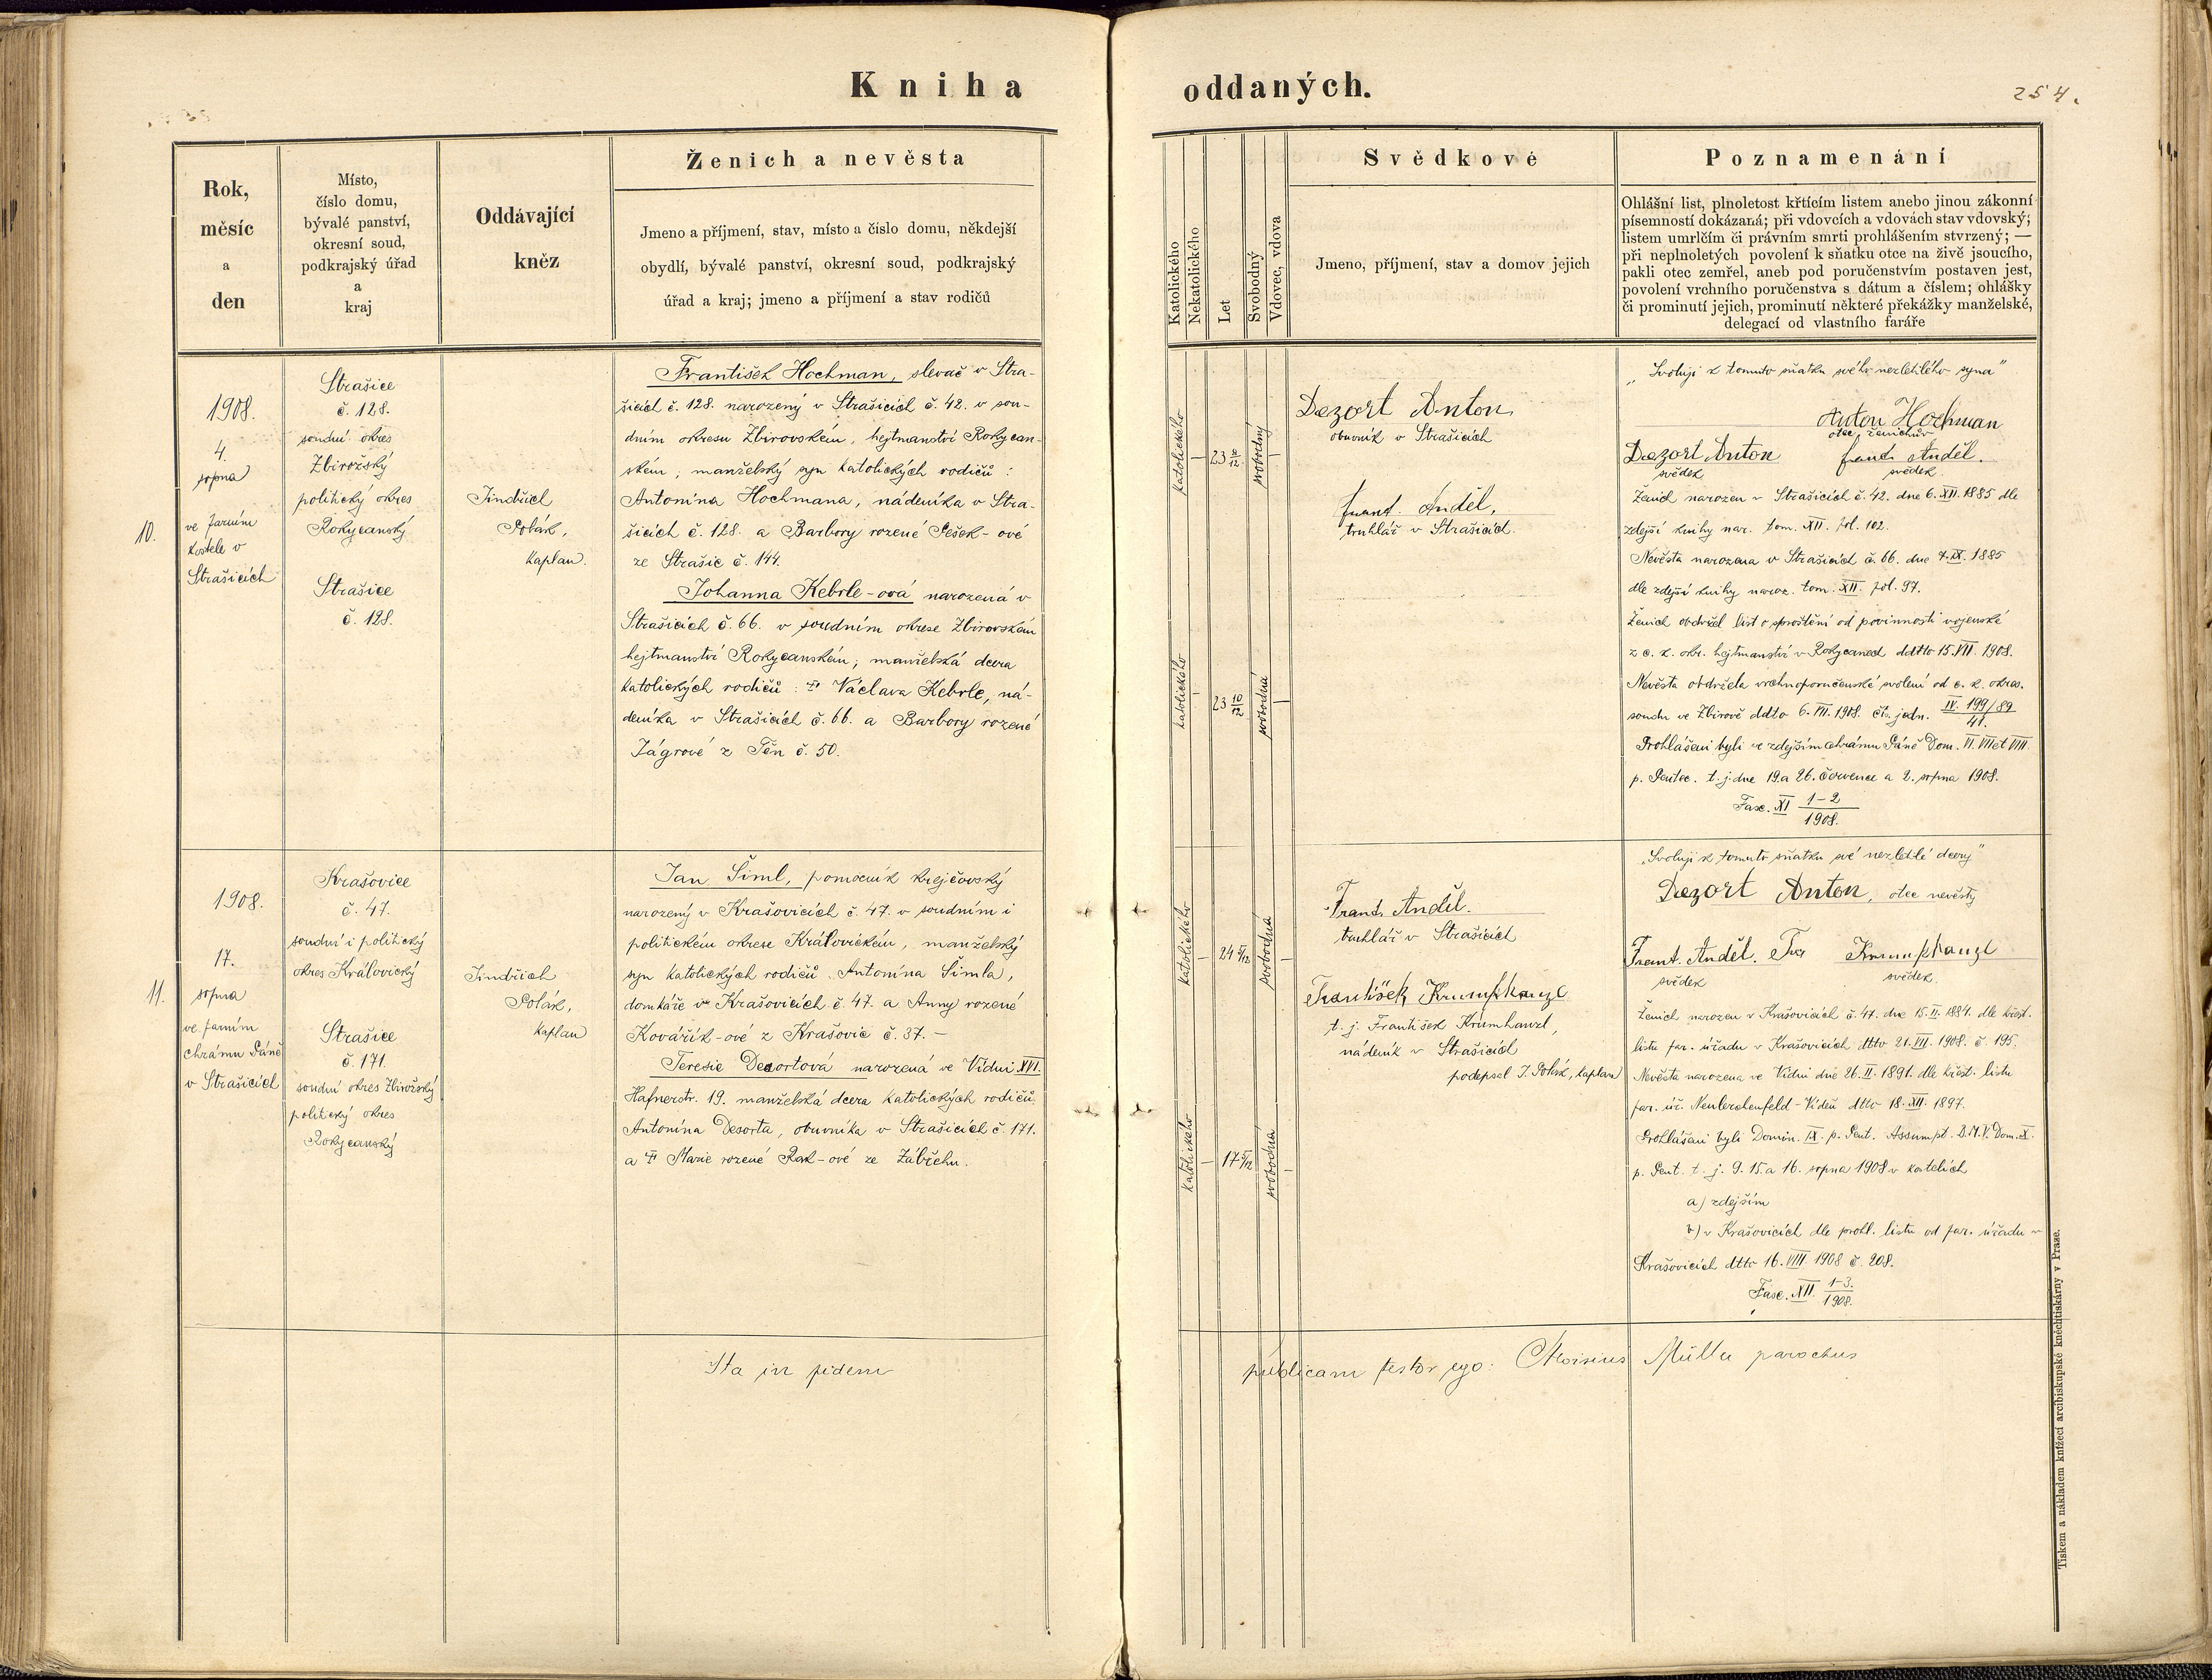 Kniha oddaných.
254.
Rok,
měsíc
a
den
Místo,
číslo domu,
bývalé panství,
okresní soud,
podkrajský úřad
a
kraj
Oddávající
kněz
Ženich a nevěsta
Jmeno a příjmení, stav, místo a číslo domu, někdejší
obydlí, bývalé panství, okresní soud, podkrajský
úřad a kraj; jmeno a příjmení a stav rodičů
Katolického
Nekatolického
Let
Svobodný
Vdovec, vdova
Svědkové
Jmeno, příjmení, stav a domov jejich
Poznamenání
Ohlášní list, plnoletost křtícím listem anebo jinou zákonní
písemností dokázaná; při vdovcích a vdovách stav vdovský;
listem umrlčím či právním smrti prohlášením stvrzený; —
při neplnoletých povolení k sňatku otce na živě jsoucího,
pakli otec zemřel, aneb pod poručenstvím postaven jest,
povolení vrchního poručenstva s dátum a číslem; ohlášky
či prominutí jejich, prominutí některé překážky manželské,
delegací od vlastního faráře
10.
1908.
4.
srpna
ve farním
kostele v
Strašicích
Strašice
č. 128.
soudní okres
Zbirožský
politický okres
Rokycanský
Strašice
č. 128.
Jindřich
Polák,
kaplan.
František Hochman, slevač v Stra-
šicích č. 128. narozený v Strašicích č. 42. v sou-
dním okresu Zbirovském, hejtmanství Rokycan-
ském; manželský syn katolických rodičů:
Antonína Hochmana, nádeníka v Stra-
šicích č. 128. a Barbory rozené Pešek-ové
ze Strašic č. 144.
Johanna Kebrle-ová narozená v
Strašicích č. 66. v soudním okrese Zbirovském
hejtmanství Rokycanském; manželská dcera
katolických rodičů: † Václava Kebrle, ná-
deníka v Strašicích č. 66. a Barbory rozené
Jágrové z Těn č. 50.
katolického
23 8/12
svobodný
katolického
23 10/12
svobodná
Dezort Anton
obuvník v Strašicích
Frant. Anděl,
truhlář v Strašicích.
„Svoluji k tomuto sňatku svého nezletilého syna"
Anton Hochman
otec ženichův
Dezort Anton Frant. Anděl.
svědek svědek.
Ženich narozen v Strašicích č. 42. dne 6. XII. 1885 dle
zdejší knihy nar. tom. XII. fol. 102.
Nevěsta narozena v Strašicích č. 66. dne 7. IX. 1885
dle zdejší knihy naroz. tom. XII. fol. 97.
Ženich obdržel list o sproštění od povinnosti vojenské
z c. k. okr. hejtmanství v Rokycanech ddtto 15. VII. 1908.
Nevěsta obdržela vrchnoporučenské svolení od c. k. okres.
soudu ve Zbirově ddto 6. VII. 1908. čís. jedn. IV. 199/89
41.
Prohlášeni byli ve zdejším chrámu Páně Dom. VI. VII et VIII.
p. Pentec. t. j. dne 19 a 26. července a 2. srpna 1908.
Fasc. XI 1-2
1908.
11.
1908.
17.
srpna
ve farním
chrámu Páně
v Strašicích
Krašovice
č. 47.
soudní i politický
okres Královický
Strašice
č. 171.
soudní okres Zbirožský
politický okres
Rokycanský
Jindřich
Polák,
kaplan
Jan Šiml, pomocník krejčovský
narozený v Krašovicích č. 47. v soudním i
politickém okrese Královickém, manželský
syn katolických rodičů Antonína Šimla,
domkáře v Krašovicích č. 47. a Anny rozené
Kovářík-ové z Krašovic č. 37. —
Teresie Desortová narozená ve Vídni XVI.
Hafnerstr. 19. manželská dcera katolických rodičů
Antonína Desorta, obuvníka v Strašicích č. 171.
a † Marie rozené Rak-ové ze Zábřehu.
katolického
24 5/12
svobodná
katolického
17 5/12
svobodná
Frant. Anděl.
truhlář v Strašicích
František Krumphanzl
t. j. František Krumhanzl,
nádeník v Strašicích
podepsal J. Polák, kaplan
„Svoluji k tomuto sňatku své nezletilé dcery"
Dezort Anton, otec nevěsty
Frant. Anděl. Fr. Krumphanzl
svědek svědek.
Ženich narozen v Krašovicích č. 47. dne 15. II. 1884. dle křest.
listu far. úřadu v Krašovicích dtto 21. VII. 1908. č. 195.
Nevěsta narozena ve Vídni dne 26. II. 1891. dle křest. listu
far. úř. Neulerchenfeld - Vídeň dtto 18. XII. 1897.
Prohlášeni byli Domin. IX. p. Pent. Assumpt. B.M.V. Dom. X.
p. Pent. t. j. 9. 15 a 16. srpna 1908 v kostelích
a) zdejším
b) v Krašovicích dle prohl. listu od far. úřadu v
Krašovicích dtto 16. VIII 1908 č. 208.
Fasc. XII. 1-3.
1908.
Ita in fidem publicam testor ego: Aloisius Müller parochus
Tiskem a nákladem knížecí arcibiskupské knihtiskárny v Praze.